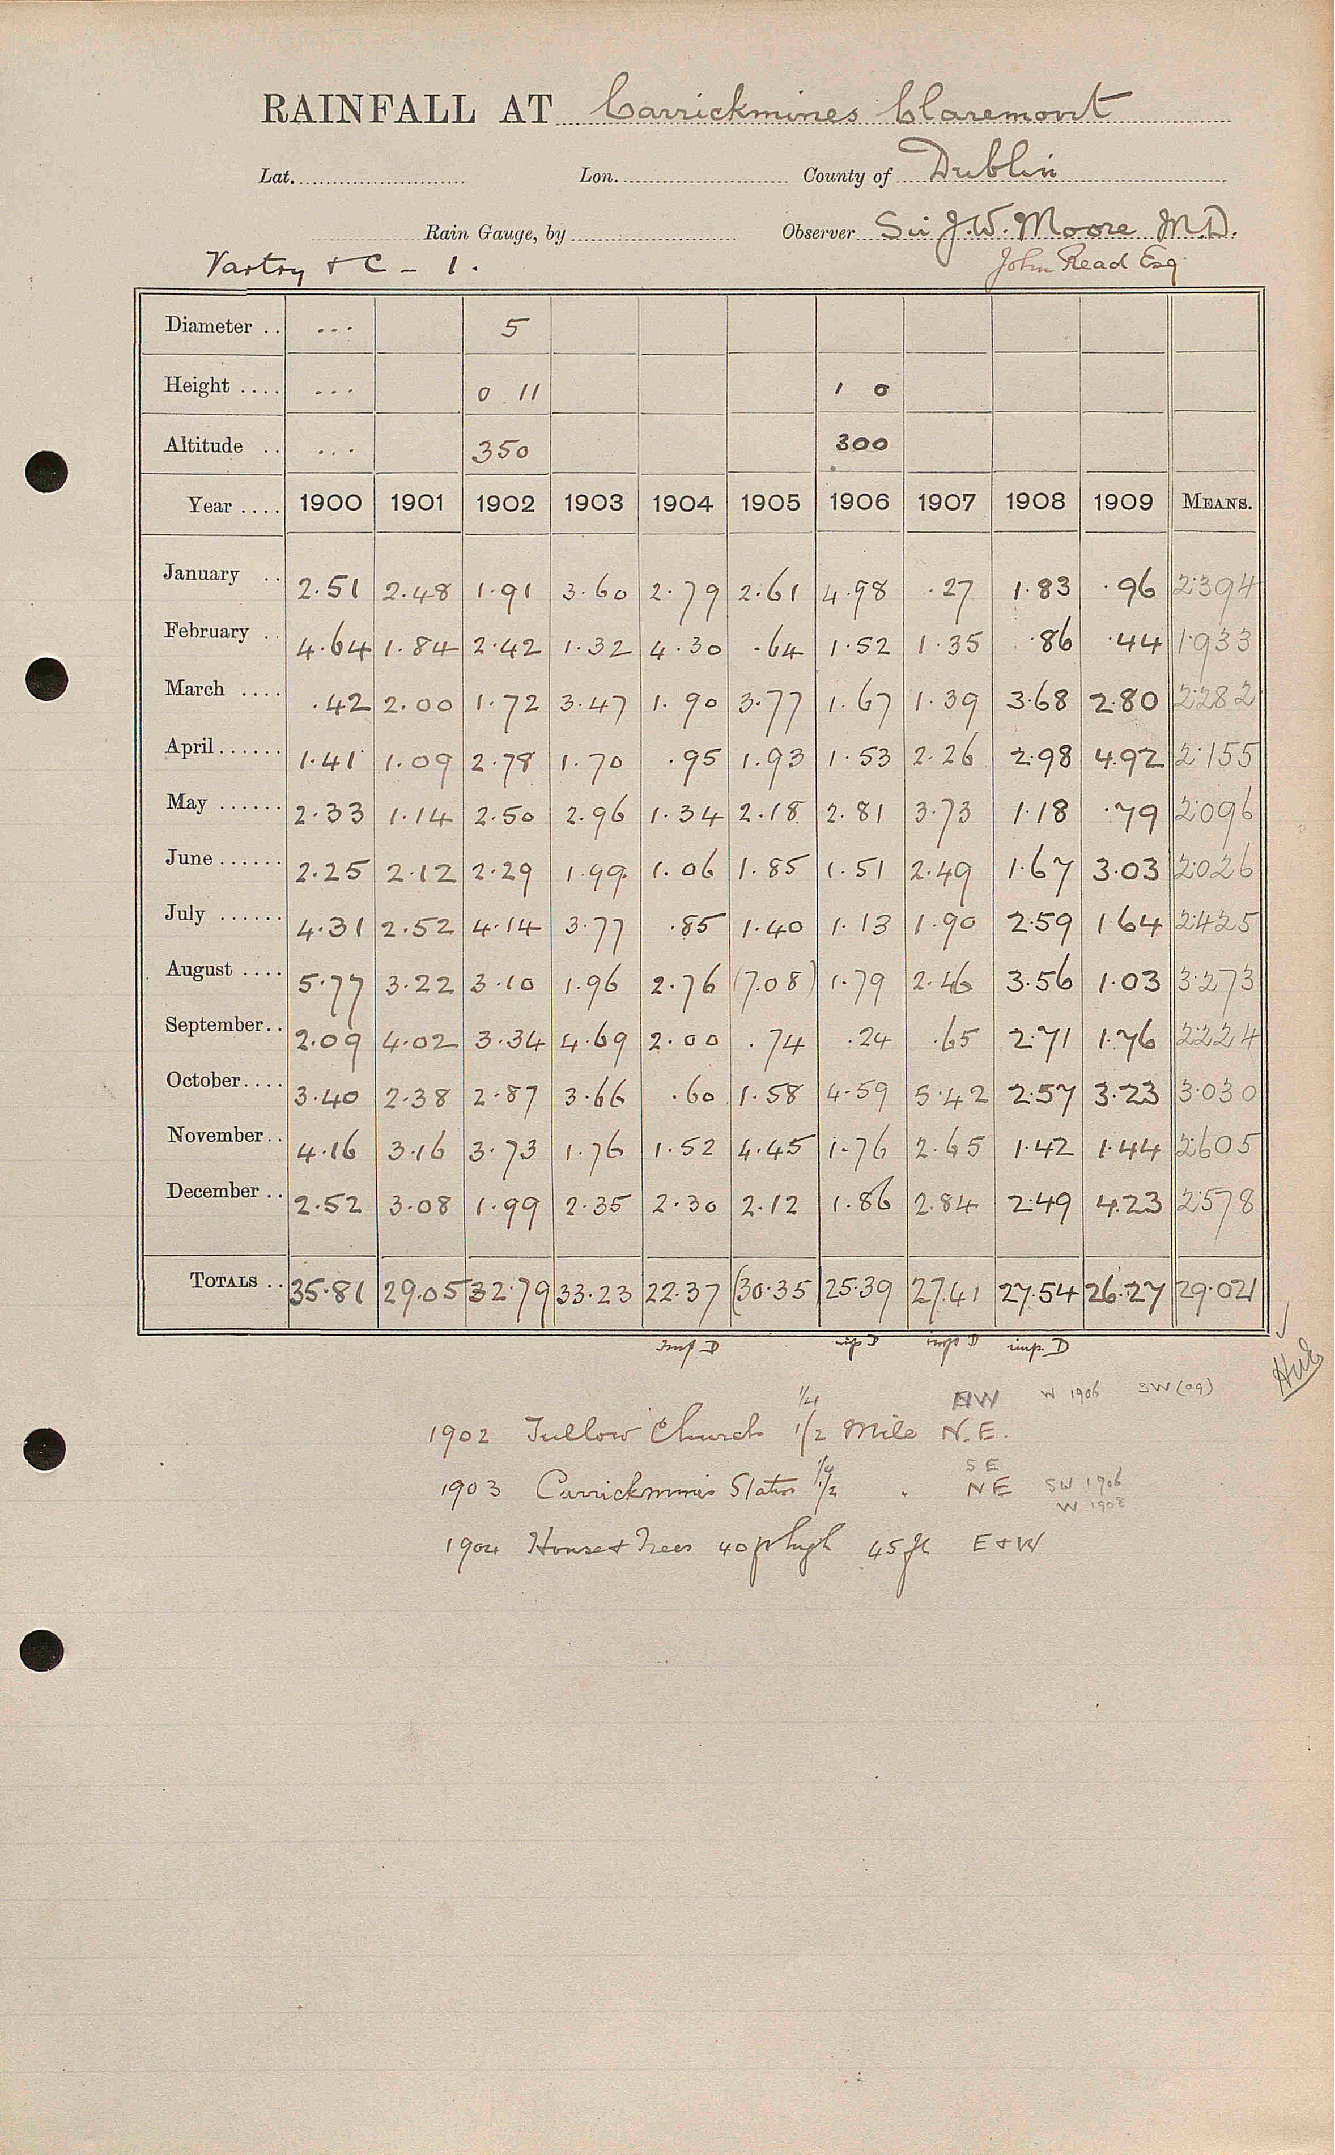 RAINFALL AT Carrickmines Claremont
Lat. Lon. County of Dublin
Rain Gauge, by Observer Sir J. W. Moore M.D.
Vartry & C - 1. John Read Esq
Diameter .. ... 5
Height .... ... 0 11 1 0
Altitude .. ... 350 300
Year .... 1900 1901 1902 1903 1904 1905 1906 1907 1908 1909 MEANS.
January .. 2.51 2.48 1.91 3.60 2.79 2.61 4.98 .27 1.83 .96 2.394
February .. 4.64 1.84 2.42 1.32 4.30 .64 1.52 1.35 .86 .44 1.933
March .... .42 2.00 1.72 3.47 1.90 3.77 1.67 1.39 3.68 2.80 2.282
April ...... 1.41 1.09 2.78 1.70 .95 1.93 1.53 2.26 2.98 4.92 2.155
May ...... 2.33 1.14 2.50 2.96 1.34 2.18 2.81 3.73 1.18 .79 2.096
June ...... 2.25 2.12 2.29 1.99 1.06 1.85 1.51 2.49 1.67 3.03 2.026
July ...... 4.31 2.52 4.14 3.77 .85 1.40 1.13 1.90 2.59 1.64 2.425
August .... 5.77 3.22 3.10 1.96 2.76 (7.08) 1.79 2.46 3.56 1.03 3.273
September .. 2.09 4.02 3.34 4.69 2.00 .74 .24 .65 2.71 1.76 2.224
October .... 3.40 2.38 2.87 3.66 .60 1.58 4.59 5.42 2.57 3.23 3.030
November .. 4.16 3.16 3.73 1.76 1.52 4.45 1.76 2.65 1.42 1.44 2.605
December .. 2.52 3.08 1.99 2.35 2.30 2.12 1.86 2.84 2.49 4.23 2.578
TOTALS .. 35.81 29.05 32.79 33.23 22.37 (30.35 25.39 27.41 27.54 26.27 29.021
imp D imp D imp D imp. D
1/4 W 1906 SW (09)
1902 Tullow Church 1/2 Mile N.E.
1/4 SE
1903 Carrickmines Station 1/2 " NE SW 1906
W 1908
1904 House & Trees 40 ft high 45 ft E & W